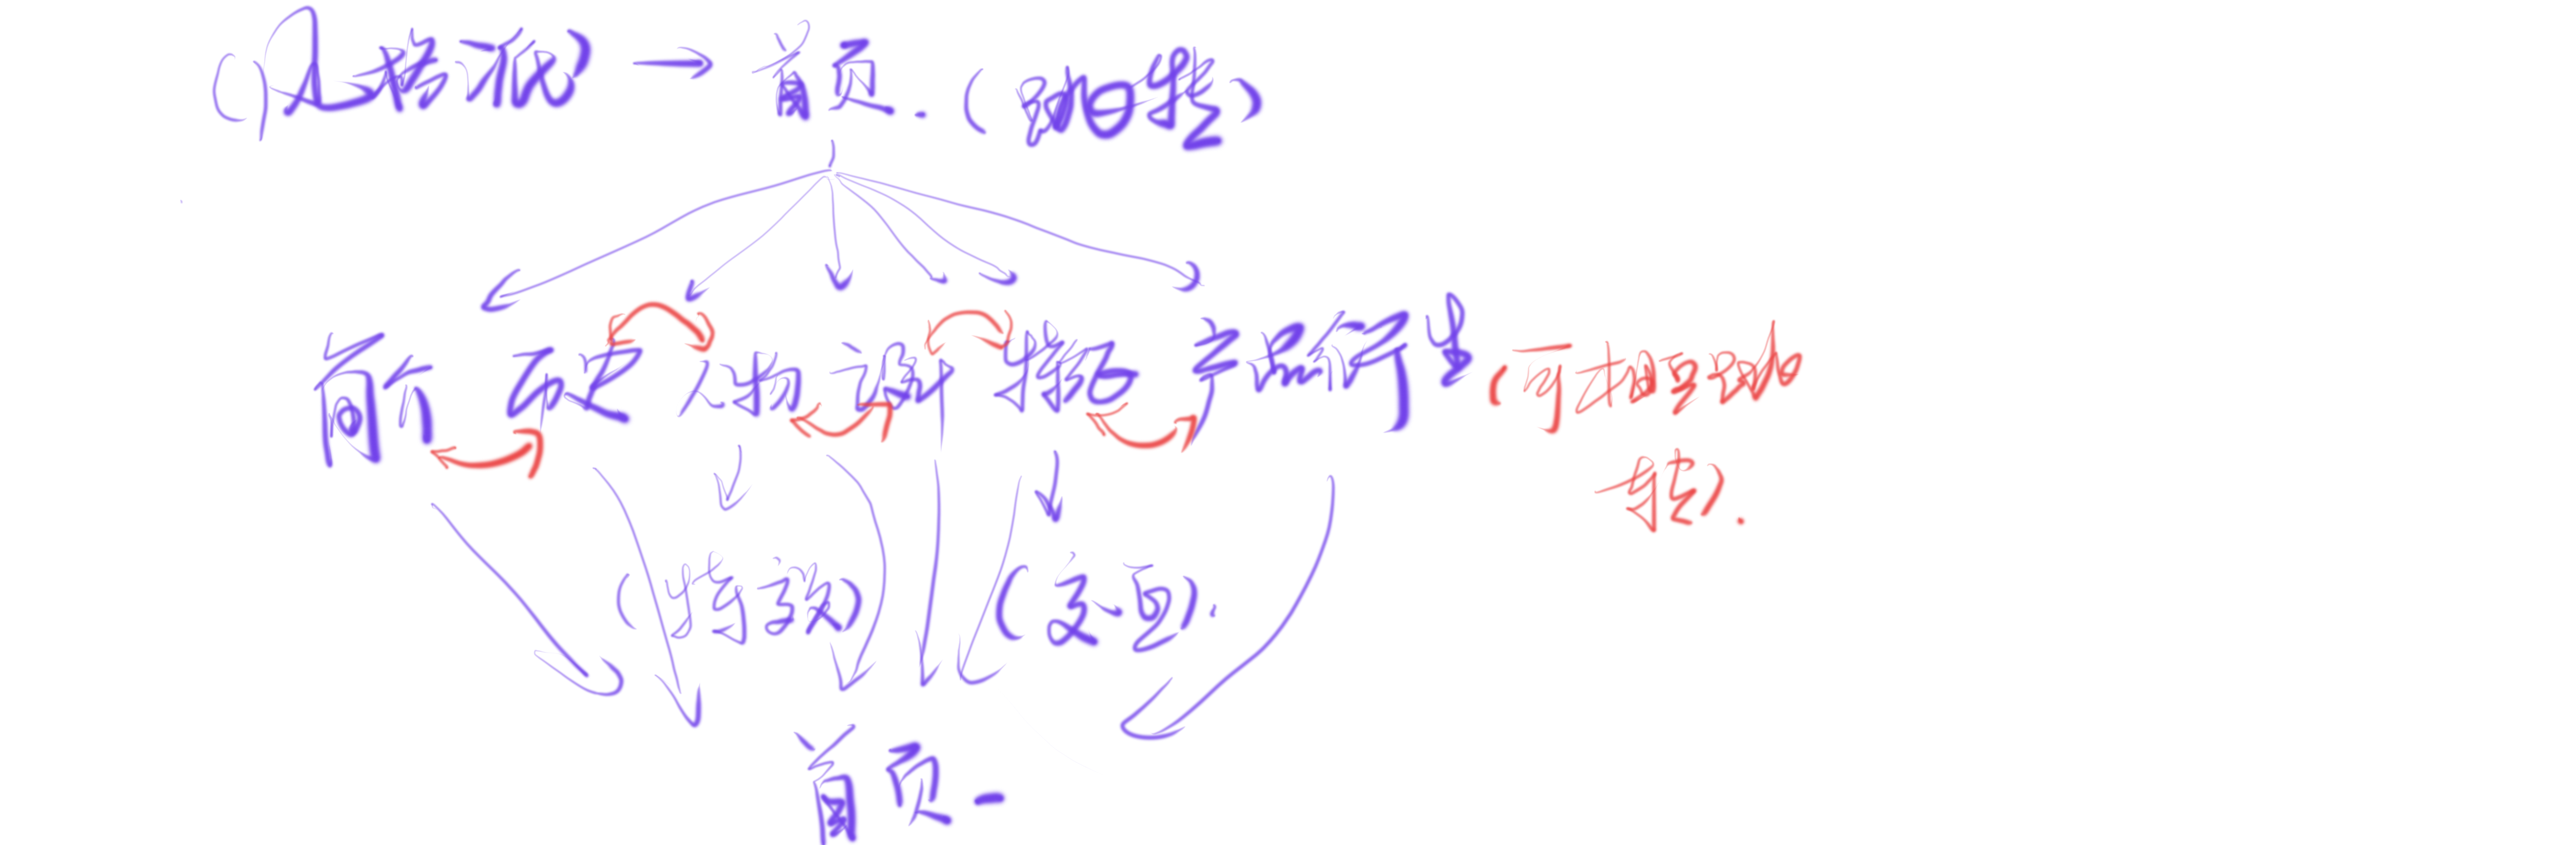 (风格派) → 首页.(跳转)
简介 历史 人物 设计 特征 产品衍生 (可相互跳
转).
(特效) (交互).
首页.